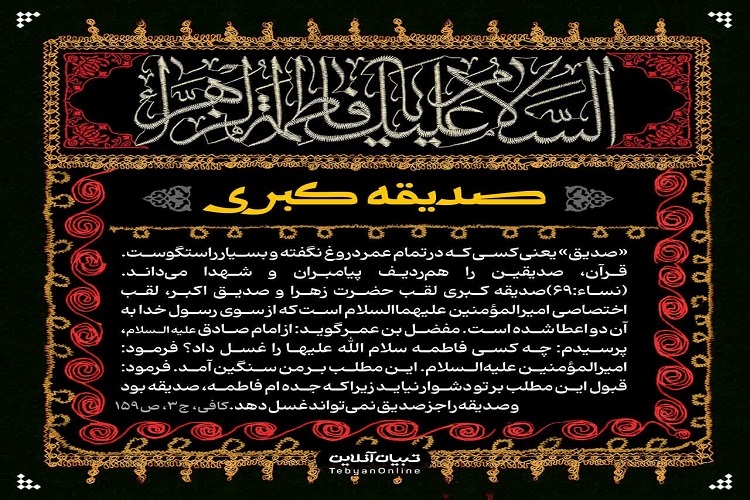 السلام علیک یا فاطمة الزهرا
صدیقه کبری
«صدیق» یعنی کسی که در تمام عمر دروغ نگفته و بسیار راستگوست.
قرآن، صدیقین را هم‌ردیف پیامبران و شهدا می‌داند.
(نساء:۶۹)صدیقه کبری لقب حضرت زهرا و صدیق اکبر، لقب
اختصاصی امیرالمؤمنین علیهما‌السلام است که از سوی رسول خدا به
آن دو اعطا شده است. مفضل بن عمر گوید: از امام صادق علیه‌السلام،
پرسیدم: چه کسی فاطمه سلام الله علیها را غسل داد؟ فرمود:
امیرالمؤمنین علیه‌السلام. این مطلب بر من سنگین آمد. فرمود:
قبول این مطلب بر تو دشوار نیاید زیرا که جده ام فاطمه، صدیقه بود
و صدیقه را جز صدیق نمی‌تواند غسل دهد. کافی، ج۳، ص۱۵۹
تبیان‌آنلاین
TebyanOnline